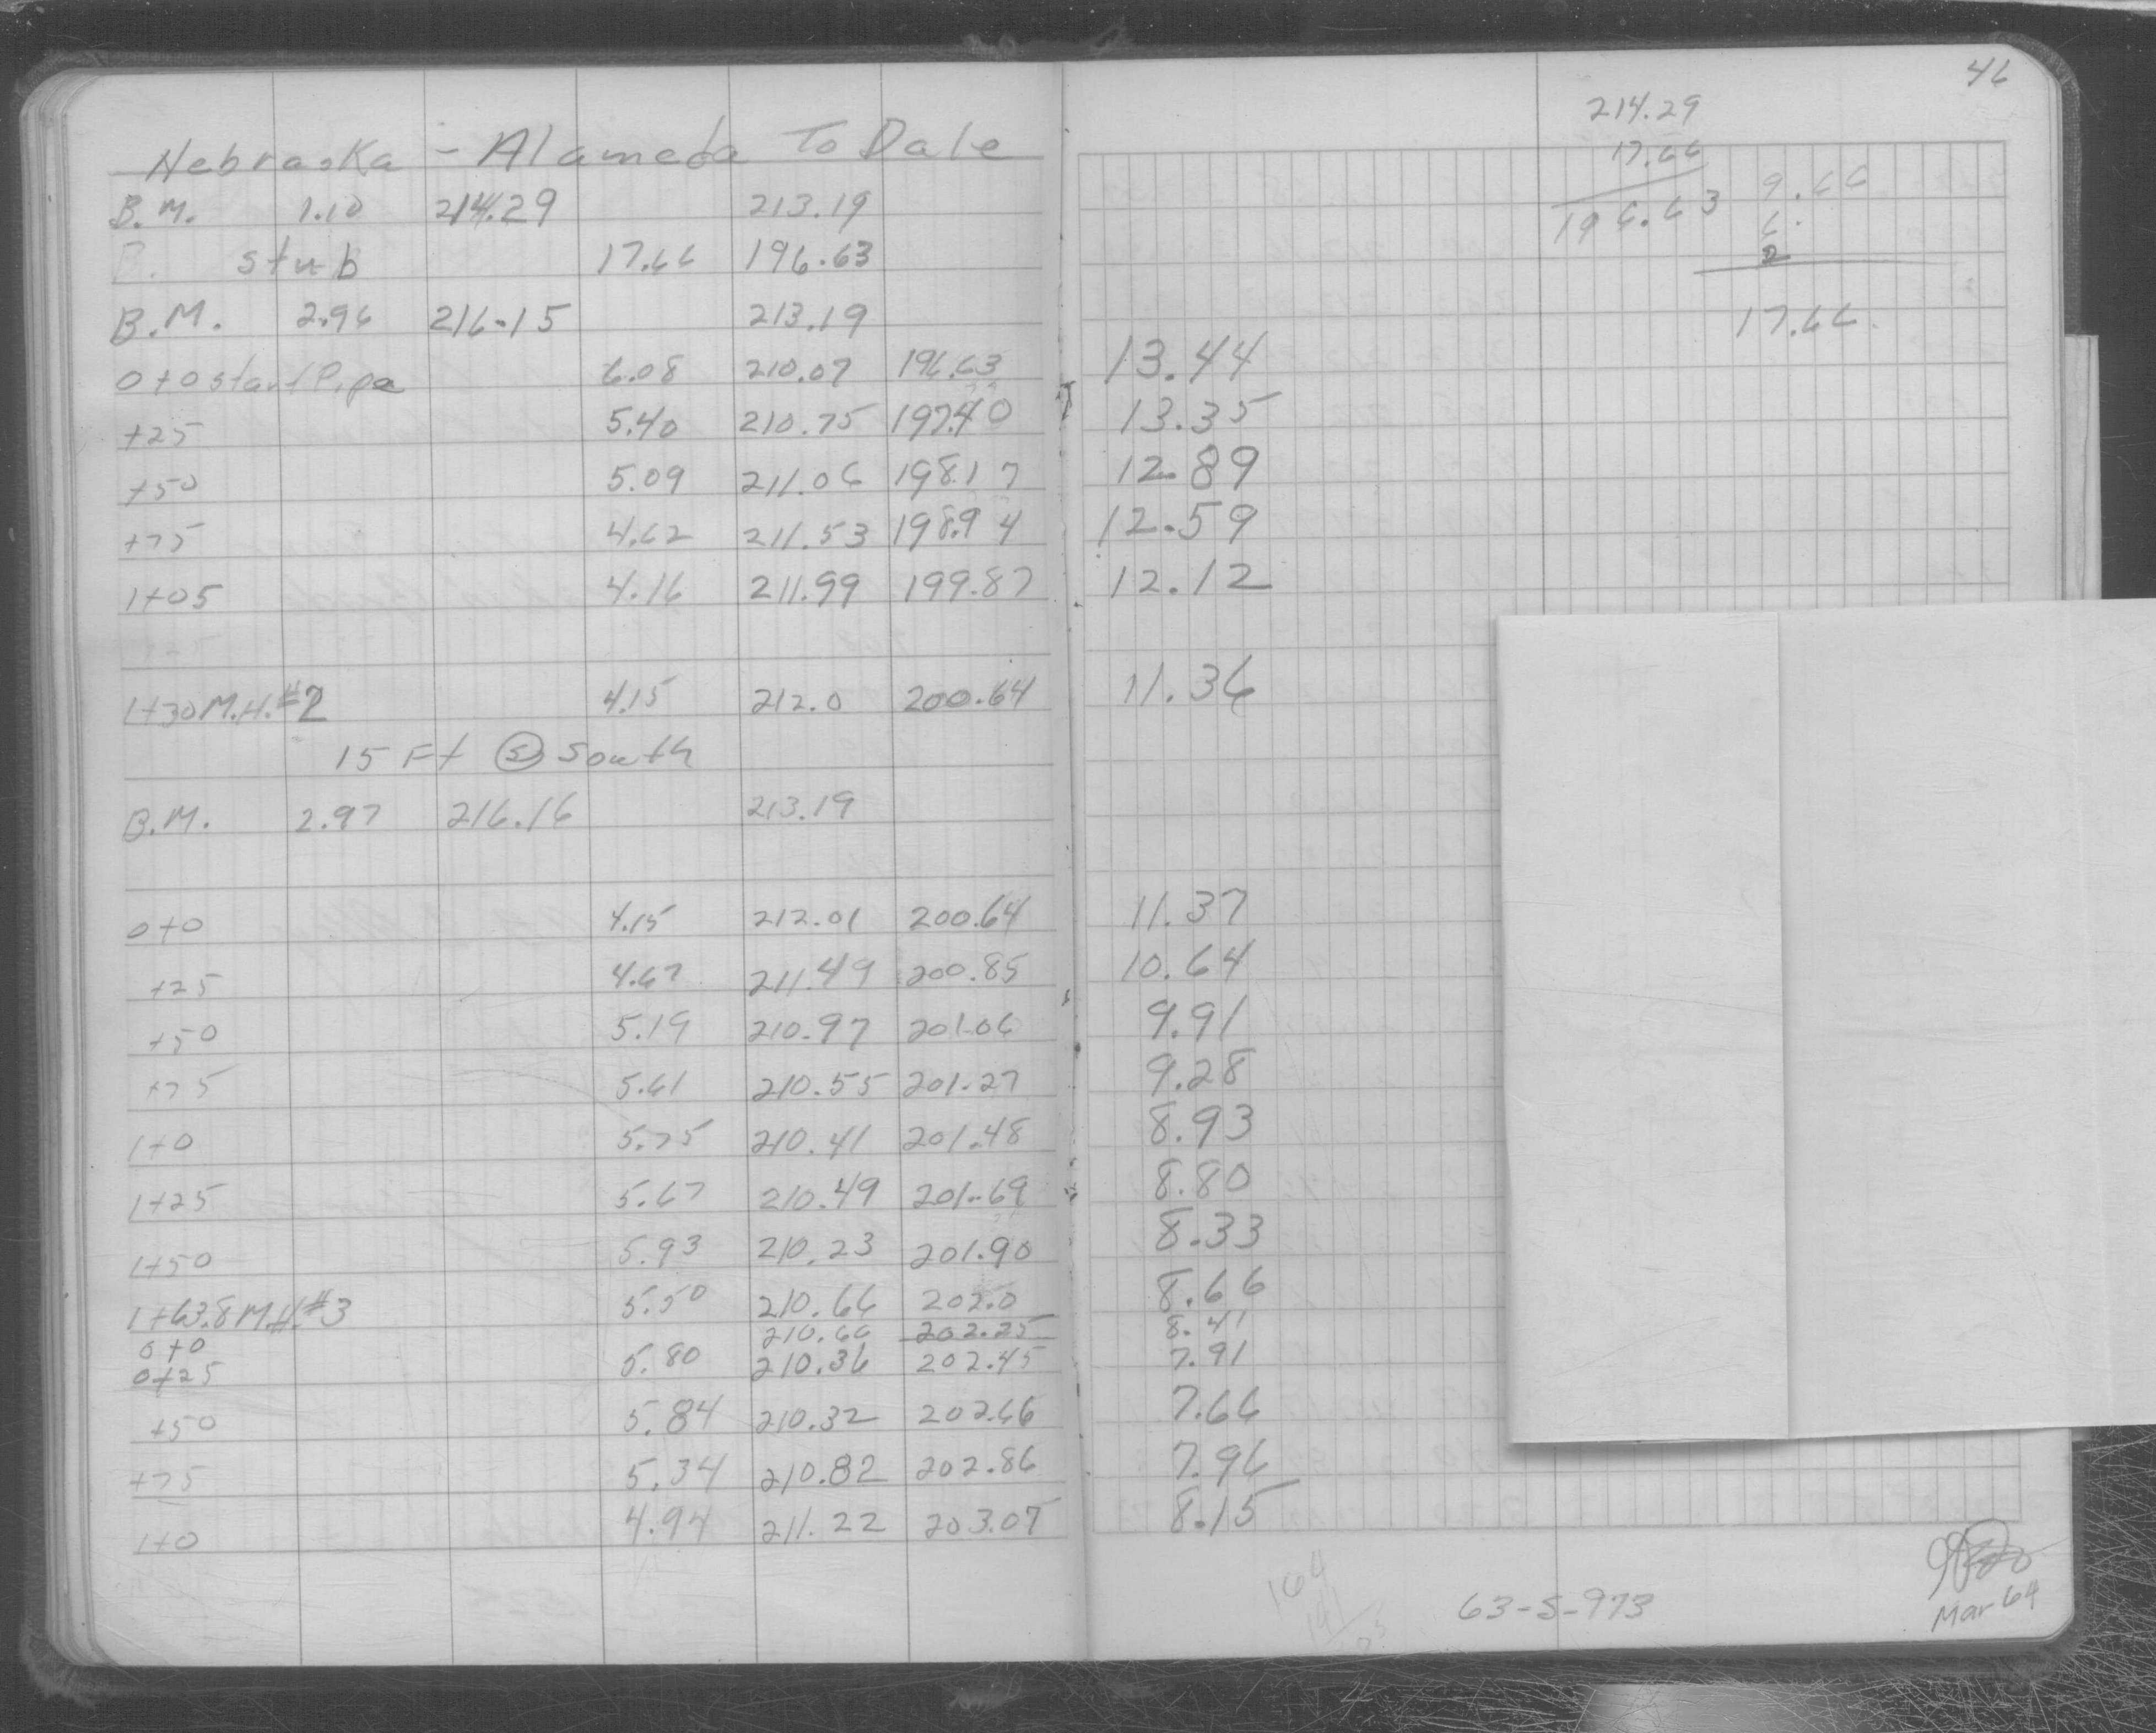 46
Nebraska - Alameda To Dale
B.M. 1.10 214.29 213.19
B. stub 17.66 196.63
B.M. 2.96 216.15 213.19
0+0 start Pipe 6.08 210.07 196.63 13.44
+25 5.40 210.75 197.40 13.35
+50 5.09 211.06 198.17 12.89
+75 4.62 211.53 198.94 12.59
1+05 4.16 211.99 199.87 12.12
1+30 M.H.#2 4.15 212.0 200.64 11.36
15 Ft (S) South
B.M. 2.97 216.16 213.19
0+0 4.15 212.01 200.64 11.37
+25 4.67 211.49 200.85 10.64
+50 5.19 210.97 201.06 9.91
+75 5.61 210.55 201.27 9.28
1+0 5.75 210.41 201.48 8.93
1+25 5.67 210.49 201.69 8.80
1+50 5.93 210.23 201.90 8.33
1+63.8 M.H.#3 5.50 210.66 202.0 8.66
0+0 210.66 202.25 8.41
0+25 5.80 210.36 202.45 7.91
+50 5.84 210.32 202.66 7.66
+75 5.34 210.82 202.86 7.96
1+0 4.94 211.22 203.07 8.15
214.29
17.66
196.63
9.66
6.
2
17.66
164
63-S-973
Mar 64